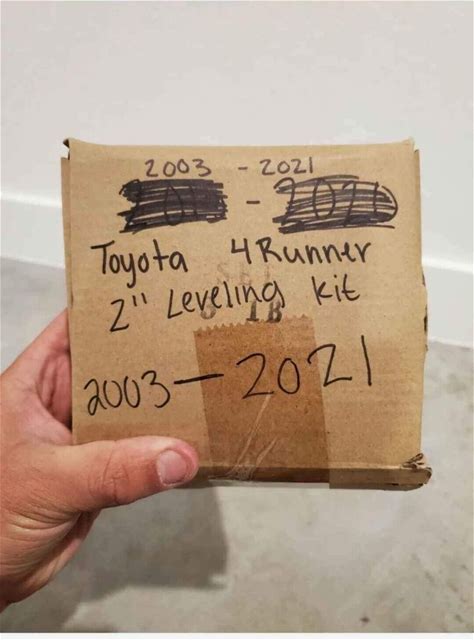 2003 - 2021
-
Toyota 4Runner
2" Leveling kit
2003 - 2021